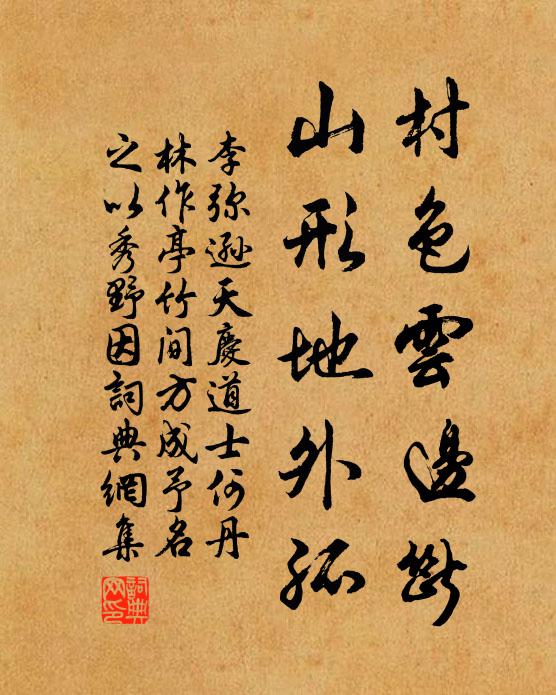 村色雲邊斷
山形地外孤
李弥遜天慶道士何丹
林作亭竹間方成予名
之以秀野因詞典網集
詞典网印